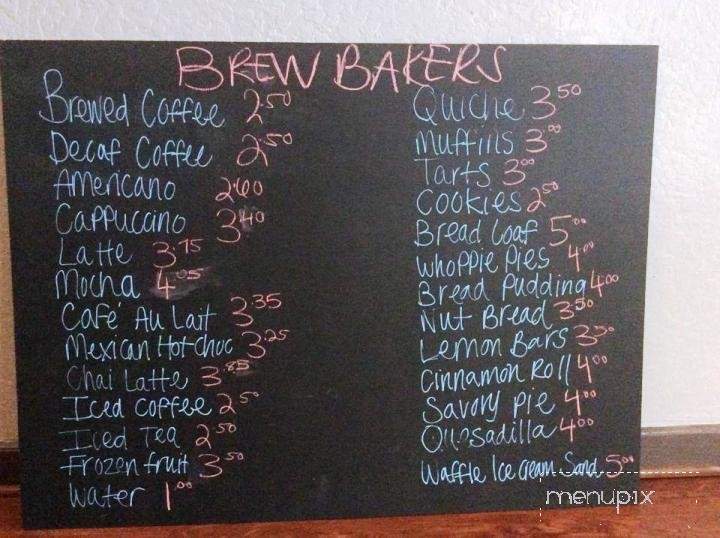 BREW BAKERS
Brewed Coffee 2.50
Decaf Coffee 2.50
Americano 2.60
Cappuccino 3.40
Latte 3.75
Mocha 4.05
Café Au Lait 3.35
Mexican Hot Choc 3.25
Chai Latte 3.85
Iced Coffee 2.50
Iced Tea 2.50
Frozen fruit 3.50
Water 1.00
Quiche 3.50
Muffins 3.00
Tarts 3.00
Cookies 2.50
Bread Loaf 5.00
Whoppie Pies 4.00
Bread Pudding 4.00
Nut Bread 3.50
Lemon Bars 3.50
Cinnamon Roll 4.00
Savory Pie 4.00
Quesadilla 4.00
Waffle Ice cream Sand. 5.00
menupix